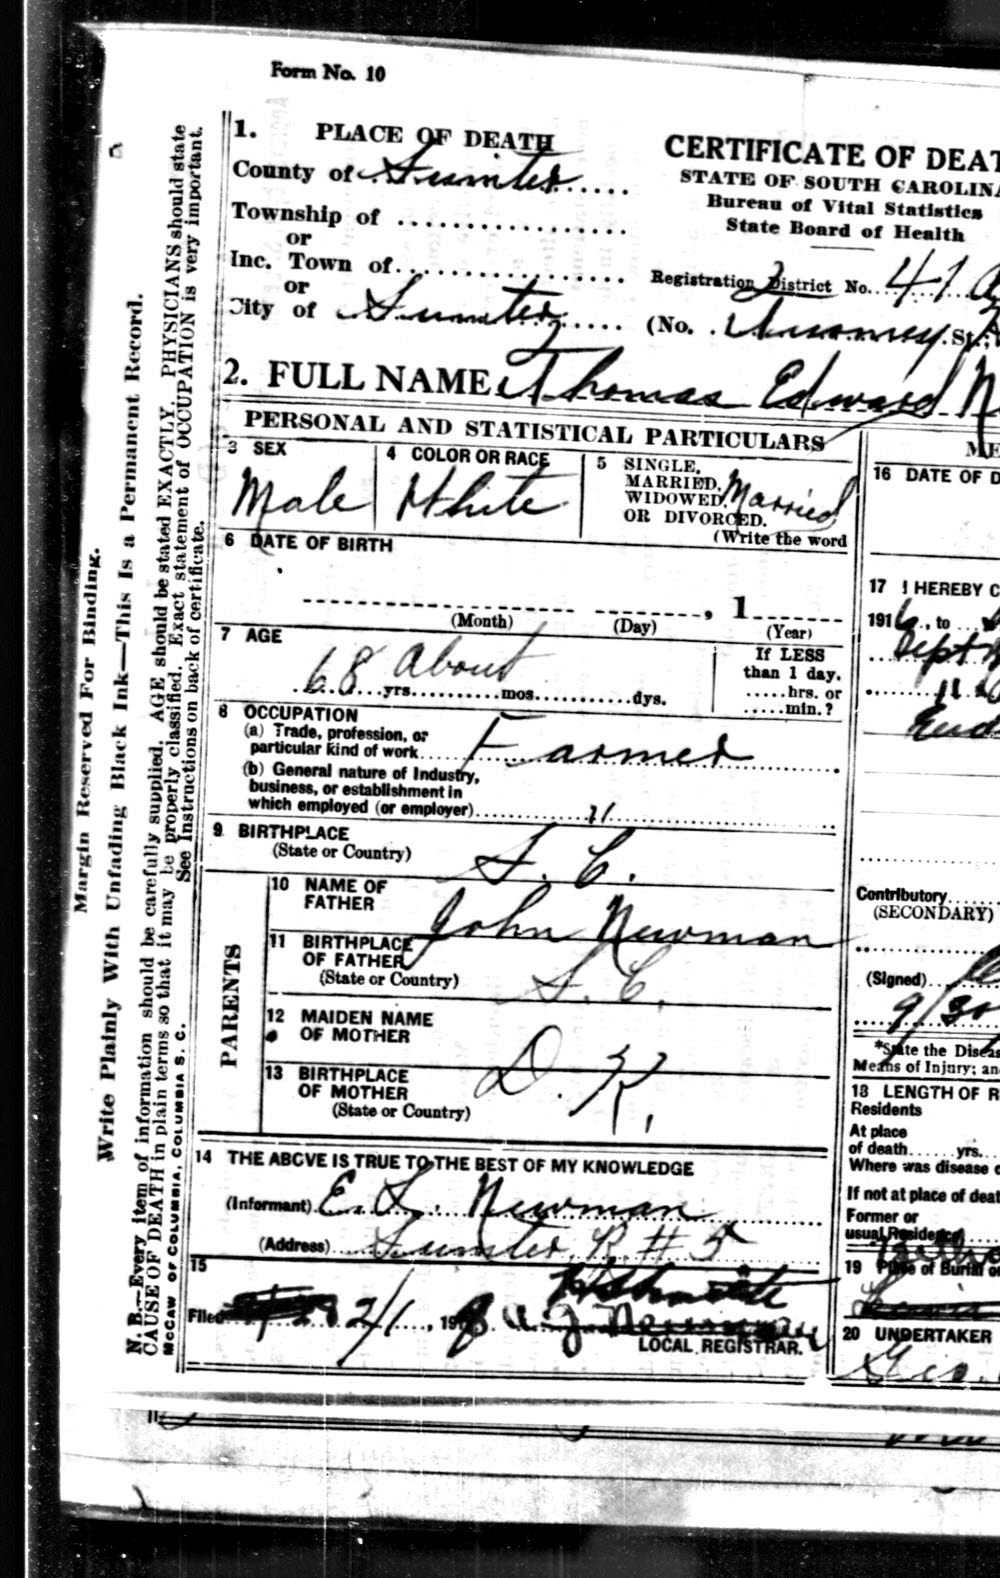 Form No. 10
1. PLACE OF DEATH
County of Sumter
Township of
or
Inc. Town of
or
City of Sumter
CERTIFICATE OF DEAT
STATE OF SOUTH CAROLINA
Bureau of Vital Statistics
State Board of Health
Registration District No. 41 A
(No. St.;
2. FULL NAME Thomas Edward N
PERSONAL AND STATISTICAL PARTICULARS
3 SEX
Male
4 COLOR OR RACE
White
5 SINGLE,
MARRIED,
WIDOWED,
OR DIVORCED.
(Write the word
Married
6 DATE OF BIRTH
, 1
(Month) (Day) (Year)
7 AGE
68 About
yrs. mos. dys.
If LESS
than 1 day,
hrs. or
min.?
8 OCCUPATION
(a) Trade, profession, or
particular kind of work Farmer
(b) General nature of Industry,
business, or establishment in
which employed (or employer) "
9 BIRTHPLACE
(State or Country) S. C.
PARENTS
10 NAME OF
FATHER John Newman
11 BIRTHPLACE
OF FATHER
(State or Country) S. C.
12 MAIDEN NAME
OF MOTHER
D. K.
13 BIRTHPLACE
OF MOTHER
(State or Country)
14 THE ABOVE IS TRUE TO THE BEST OF MY KNOWLEDGE
(Informant) E. S. Newman
(Address) Sumter R # 5
15
Filed 2/1, 19
LOCAL REGISTRAR.
ME
16 DATE OF D
17 I HEREBY C
1916, to
Sept
11
Contributory
(SECONDARY)
(Signed)
9/30
*State the Diseas
Means of Injury; an
18 LENGTH OF R
Residents
At place
of death yrs.
Where was disease c
If not at place of deat
Former or
usual Residence
19 Place of Burial o
20 UNDERTAKER
Geo.
Margin Reserved For Binding.
Write Plainly With Unfading Black Ink—This Is a Permanent Record.
N. B.—Every item of information should be carefully supplied. AGE should be stated EXACTLY. PHYSICIANS should state
CAUSE OF DEATH in plain terms so that it may be properly classified. Exact statement of OCCUPATION is very important.
See Instructions on back of certificate.
McCAW OF COLUMBIA, COLUMBIA S. C.